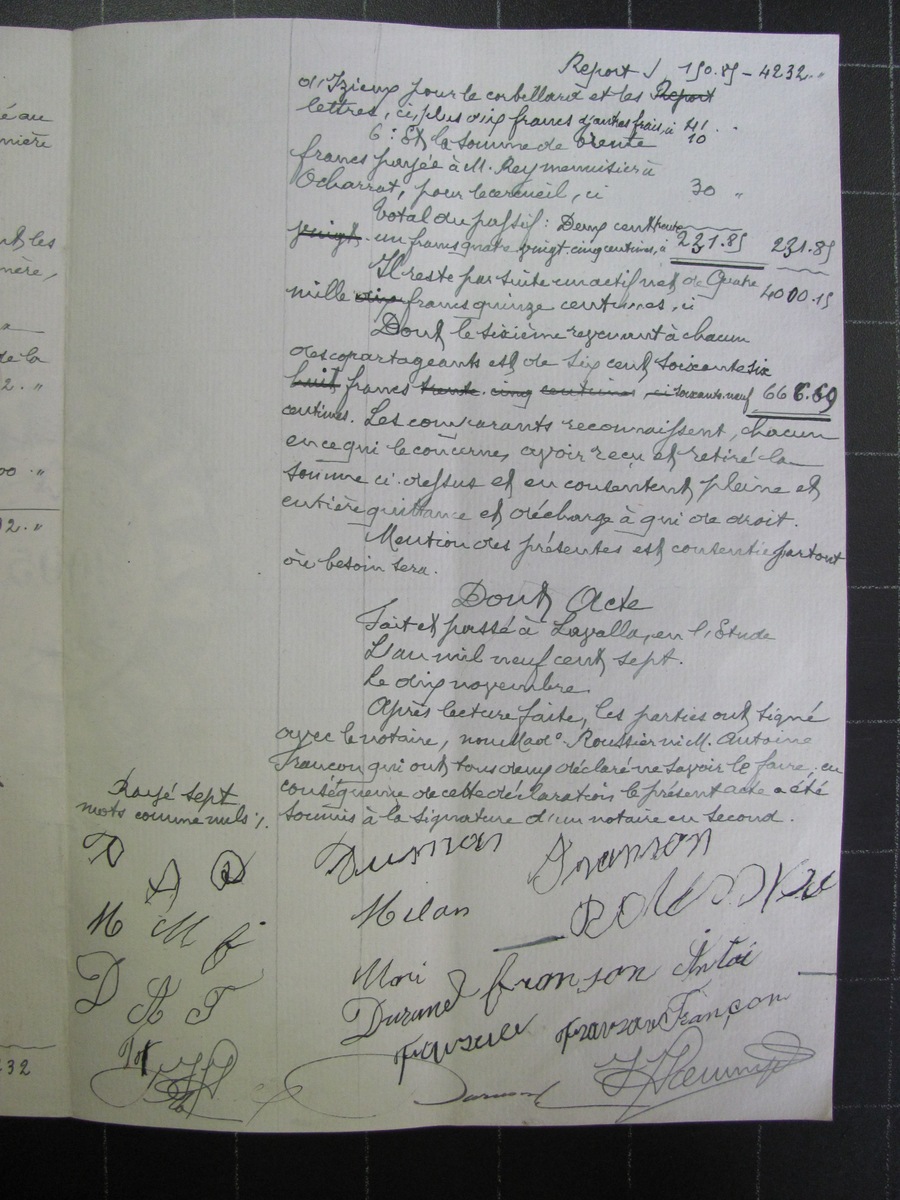 é au
nière
nt les
nère,
a
de la
2. "
00 . "
02. "
32
Report 150.85 - 4232. "
d'Izieux pour le corbillard et les Report
lettres, ci, plus dix francs d'autres frais, ci 41. "
10
6° Et la somme de trente
francs payée à M. Rey menuisier à
Ocharrat, pour le cercueil, ci 30 "
Total du passif : Deux cent trente
vingt un francs quatre vingt cinq centimes, ci 231.85 231.85
Il reste par suite un actif net de Quatre
mille dix francs quinze centimes, ci 4000.15
Dont le sixième revenant à chacun
des copartageants est de Six cent soixante six
huit francs trente cinq centimes ci soixante neuf 666.69
centimes. Les comparants reconnaissent, chacun
en ce qui le concerne, avoir reçu et retiré la
somme ci-dessus et en consentent pleine et
entière quittance et décharge à qui de droit.
Mention des présentes est consentie partout
où besoin sera.
Dont Acte
Fait et passé à Lavalla, en l'Etude
L'an mil neuf cent sept.
Le dix novembre.
Après lecture faite, les parties ont signé
avec le notaire, non Mad° Roussier ni M. Antoine
Françon qui ont tous deux déclaré ne savoir le faire. en
conséquence de cette déclaration le présent acte a été
soumis à la signature d'un notaire en second.
Rayé sept
mots comme nuls ;.
D A D
M M f
D A F
Milan
Durand fronson Antoi
Françon